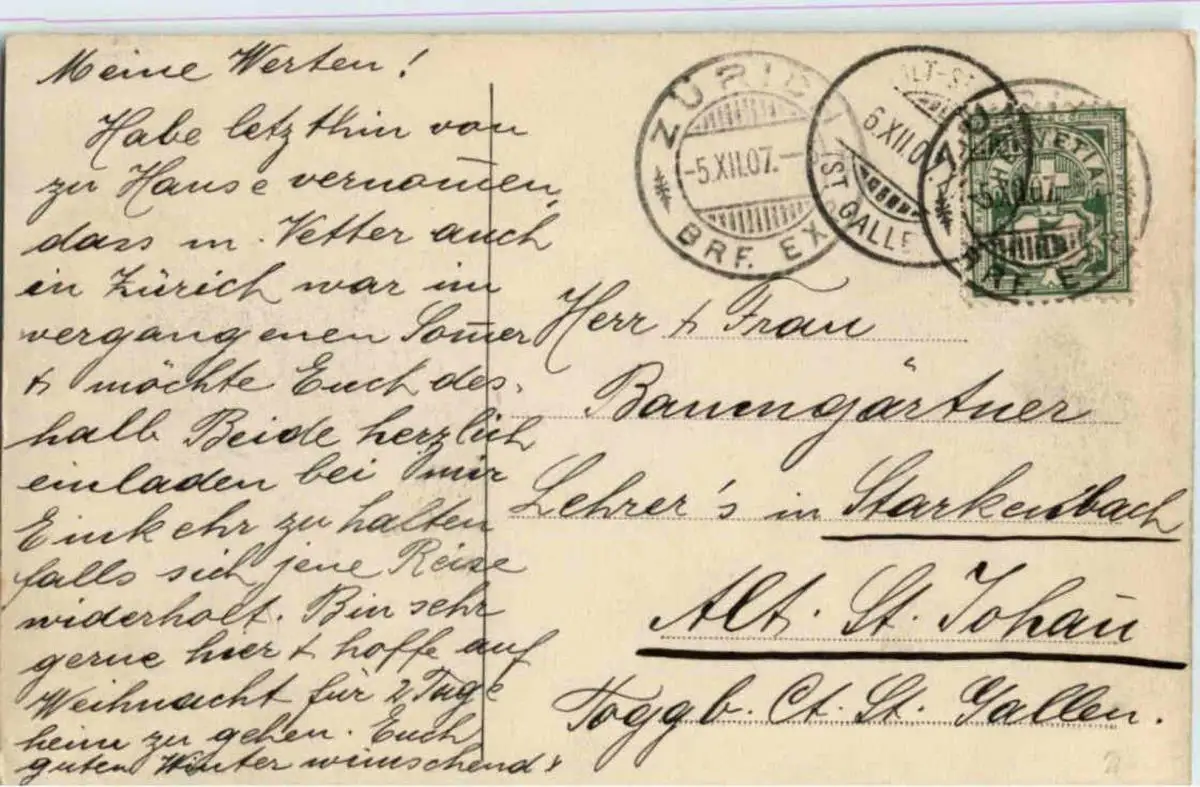 Meine Werten!
Habe letzthin von
zu Hause vernom̄en,
dass m. Vetter auch
in Zürich war im
vergangenen Som̄er
& möchte Euch des-
halb Beide herzlich
einladen bei mir
Einkehr zu halten
falls sich jene Reise
widerholt. Bin sehr
gerne hier & hoffe auf
Weihnacht für 2 Tage
heim zu gehen. Euch
guten Winter wünschend
ZÜRICH
-5.XII.07.-
BRF. EX
ALT-ST.
6.XII.0
(ST. GALLE
ZÜ
-5.XII.07.
BRF. EX
HELVETIA
5
Herr & Frau
Baumgärtner
Lehrer's in Starkenbach
Alt. St. Johañ
Toggb. Ct. St. Gallen.